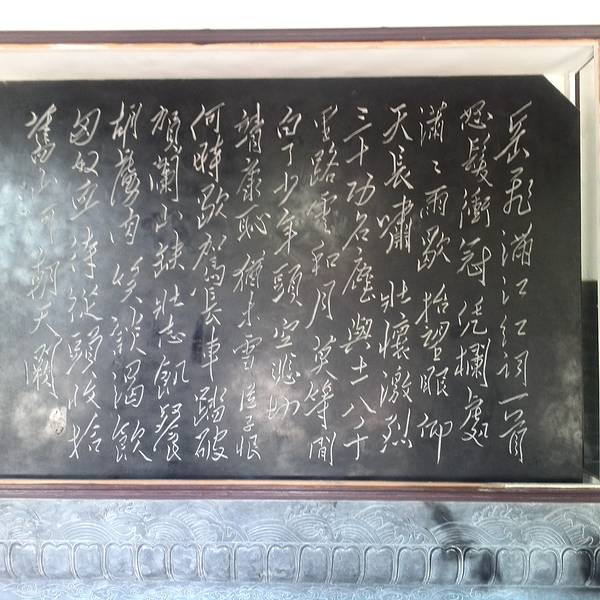 岳飛滿江紅詞一首
怒髮衝冠凭欄處
瀟〻雨歇抬望眼仰
天長嘯壯懷激烈
三十功名塵與土八千
里路雲和月莫等閒
白了少年頭空悲切
靖康恥猶未雪臣子恨
何時歇駕長車踏破
賀蘭山缺壯志飢餐
胡虜肉笑談渴飲
匈奴血待從頭收拾
舊山河朝天闕